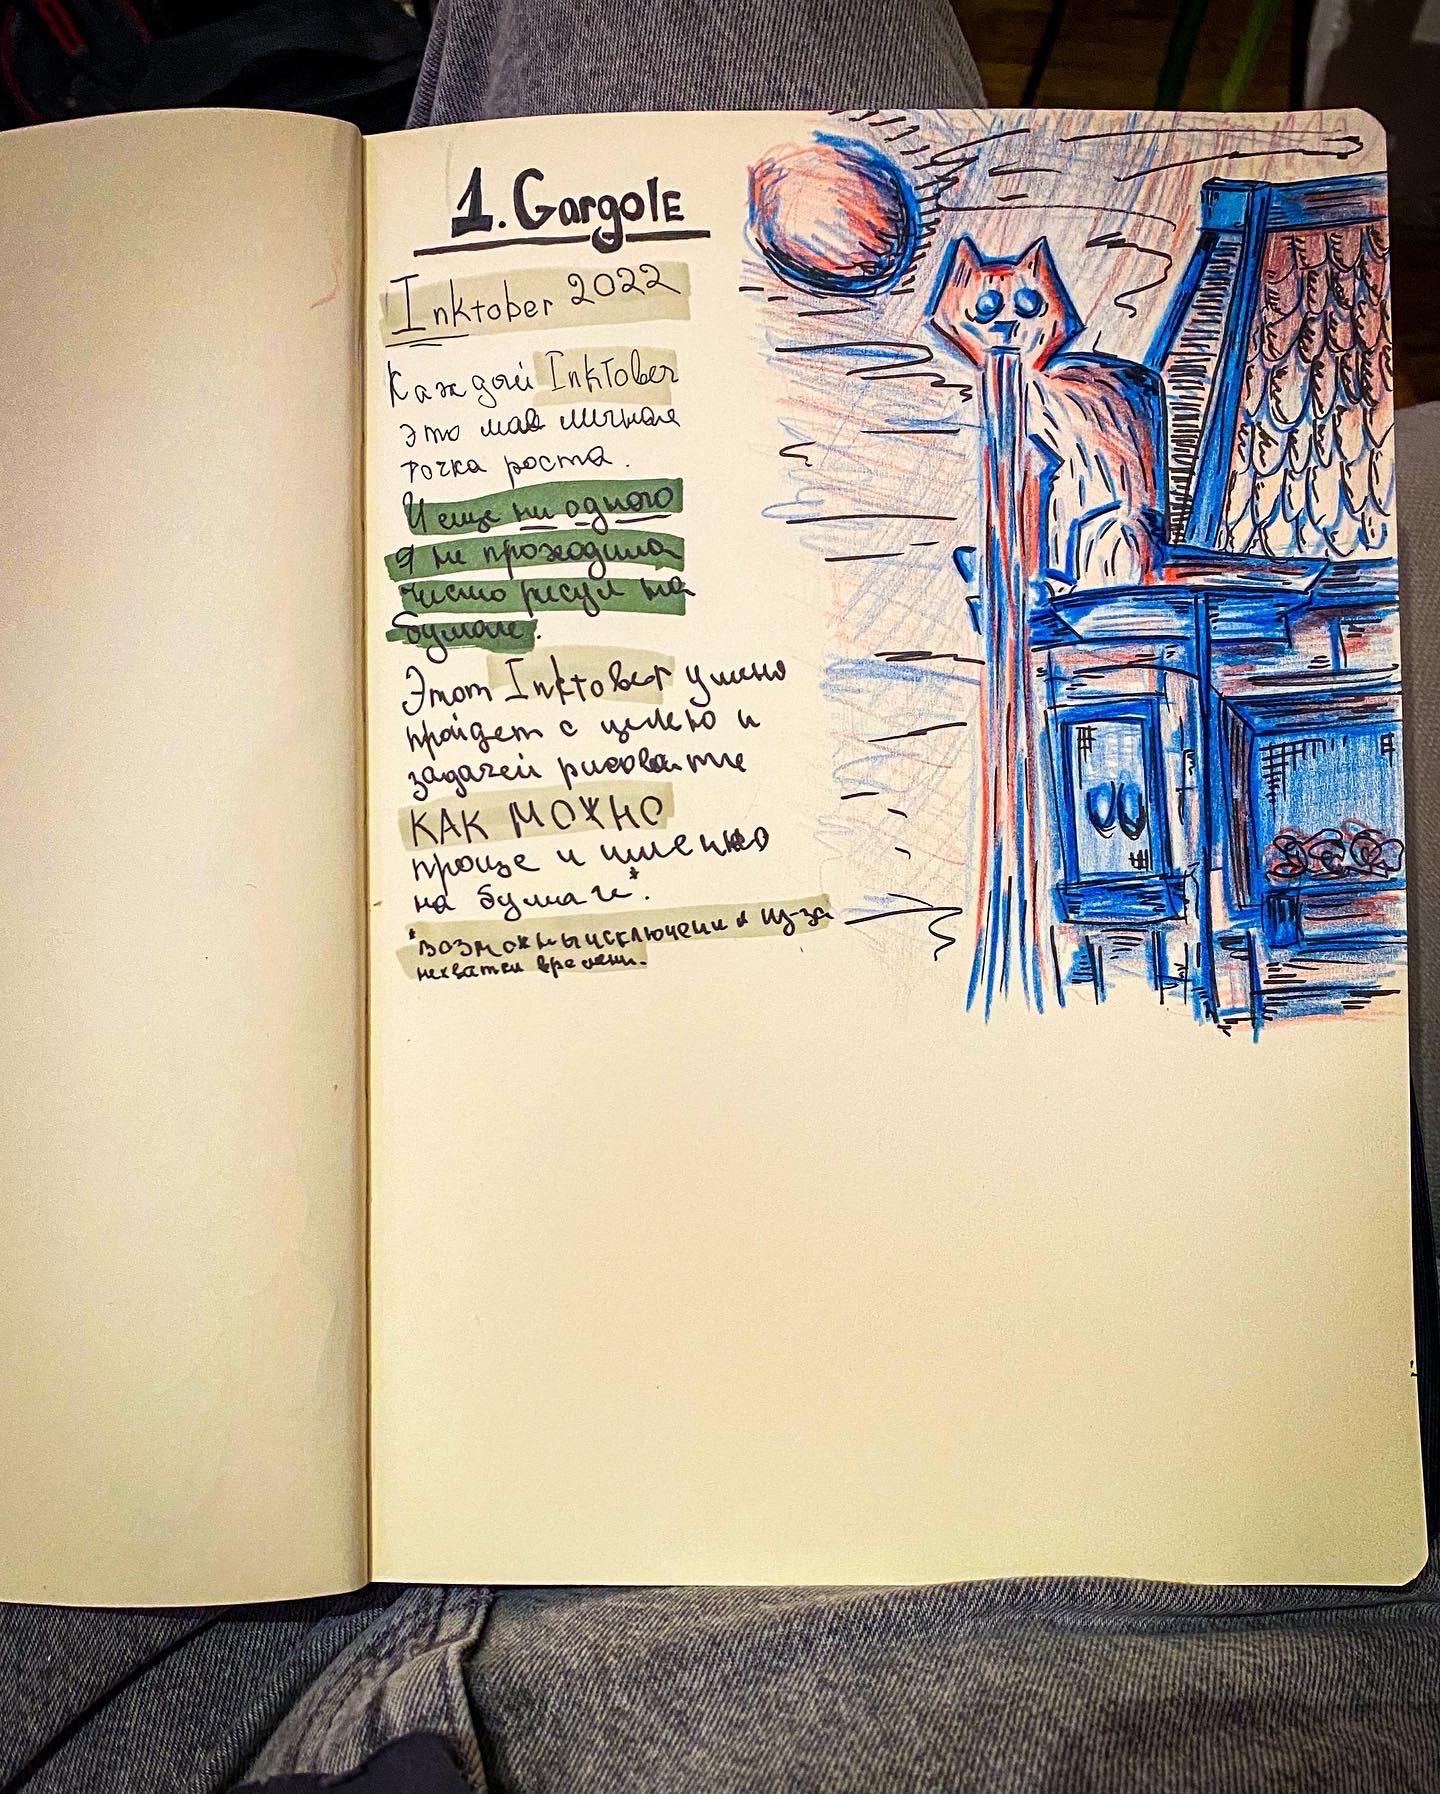 1. Gargole
Inktober 2022
Каждый Inktober
это моя личная
точка роста.
И еще ни одного
я не проходила
чисто рисуя на
бумаге.
Этот Inktober
пройдет с целью и
задачей рисовать
КАК МОЖНО
проще и именно
на бумаге*.
*возможны исключения из-за
нехватки времени.